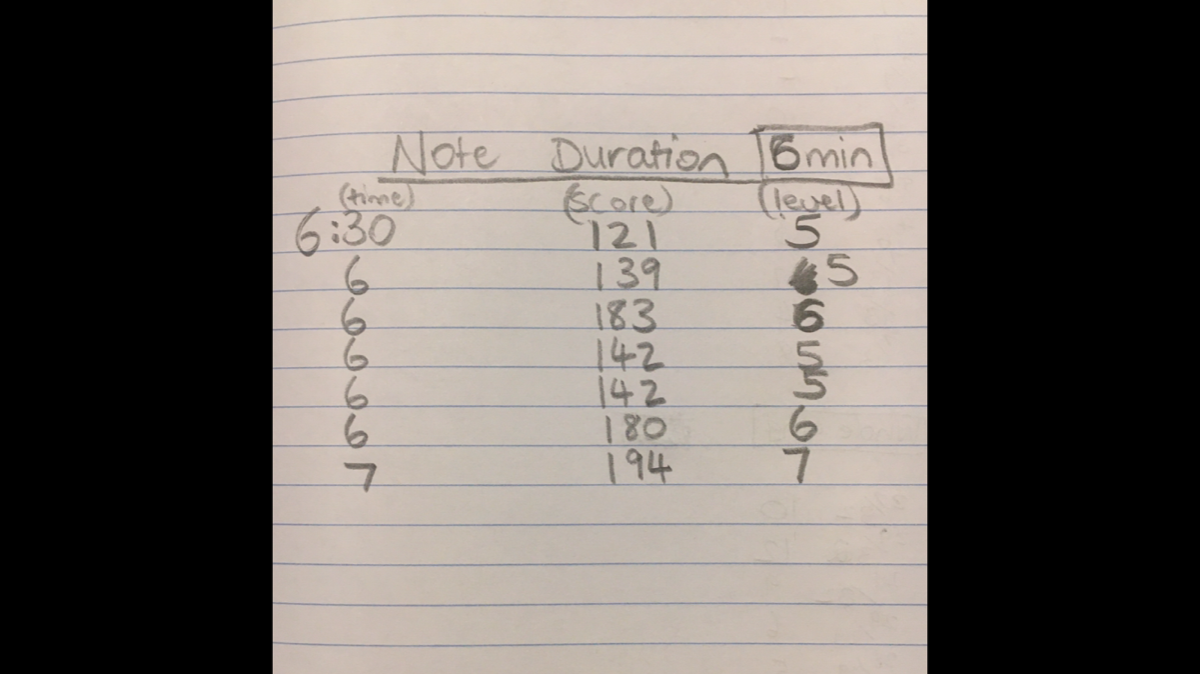 Note Duration 5min
(time) (score) (level)
6:30 121 5
6 139 5
6 183 6
6 142 5
6 142 5
6 180 6
7 194 7